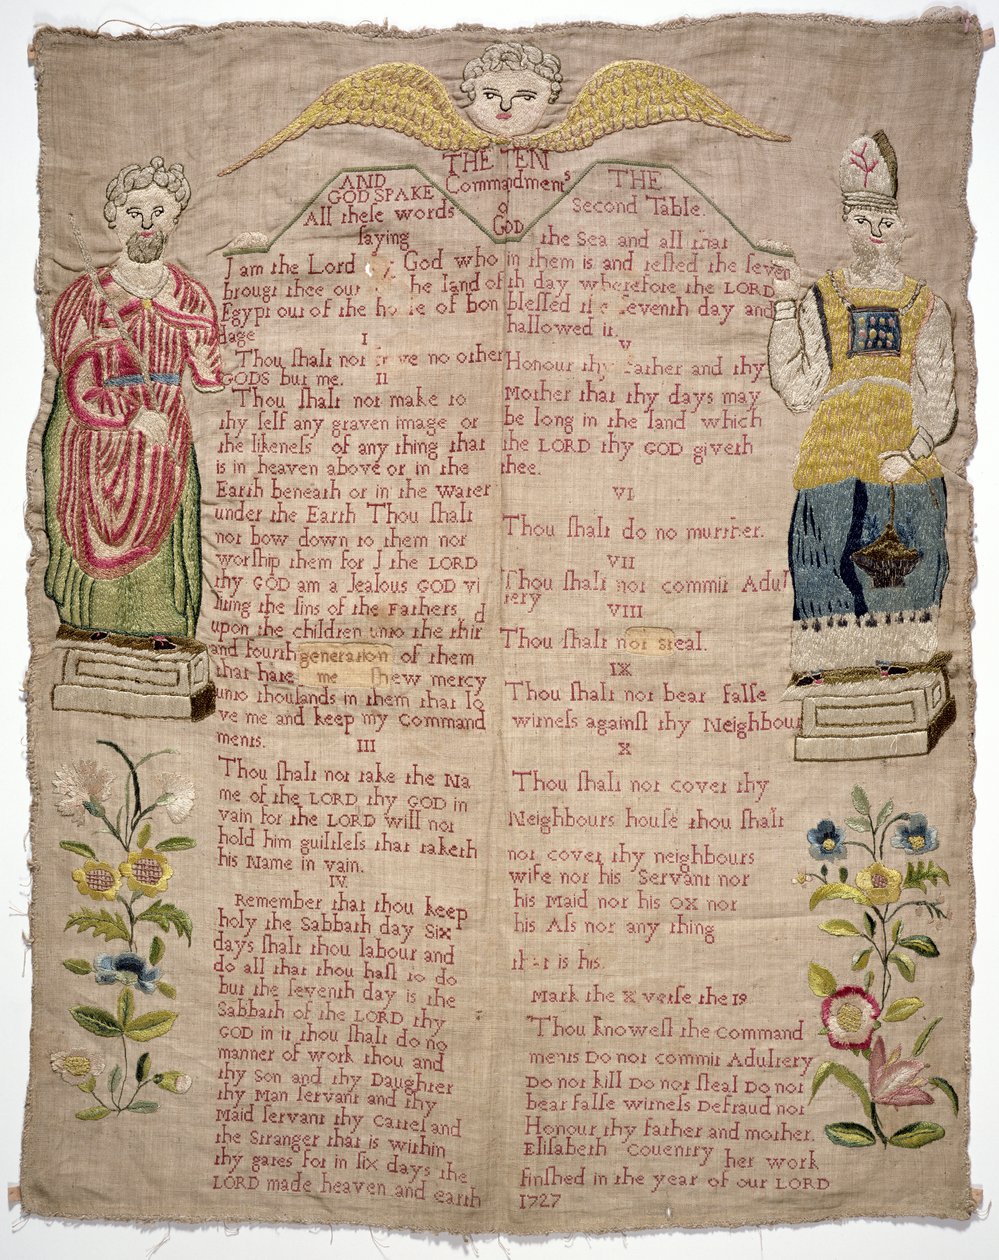 THE TEN
Commandments
of
GOD
AND
GOD SPAKE
All theſe words
ſaying
I am the Lord thy God who
brougt thee out of the land of
Egypt out of the houſe of bon
dage
I
Thou ſhalt not have no other
GODS but me.
II
Thou ſhalt not make to
thy ſelf any graven image or
the likeneſs of any thing that
is in heaven above or in the
Earth beneath or in the Water
under the Earth Thou ſhalt
not bow down to them nor
worſhip them for I the LORD
thy GOD am a Jealous GOD vi
ſiting the ſins of the Fathers d
upon the children unto the thir
and fourth generation of them
that hate me ſhew mercy
unto thouſands in them that lo
ve me and keep my Command
ments.
III
Thou ſhalt not take the Na
me of the LORD thy GOD in
vain for the LORD will not
hold him guiltleſs that taketh
his Name in vain.
IV.
Remember that thou keep
holy the Sabbath day Six
days ſhalt thou labour and
do all that thou haſt to do
but the ſeventh day is the
Sabbath of the LORD thy
GOD in it thou ſhalt do no
manner of work thou and
thy Son and thy Daughter
thy Man ſervant and thy
Maid ſervant thy Cattel and
the Stranger that is within
thy gates for in ſix days the
LORD made heaven and earth
THE
Second Table.
the Sea and all that
in them is and reſted the ſeven
th day wherefore the LORD
bleſſed the ſeventh day and
hallowed it.
V
Honour thy Father and thy
Mother that thy days may
be long in the land which
the LORD thy GOD giveth
thee.
VI
Thou ſhalt do no murther.
VII
Thou ſhalt not commit Adul
tery
VIII
Thou ſhalt not steal.
IX
Thou ſhalt not bear falſe
witneſs againſt thy Neighbour
X
Thou ſhalt not covet thy
Neighbours houſe thou ſhalt
not covet thy neighbours
wife nor his Servant nor
his Maid nor his OX nor
his Aſs nor any thing
that is his.
Mark the X verſe the 19
Thou knoweſt the command
ments Do not commit Adultery
Do not kill Do not ſteal Do not
bear falſe witneſs Defraud not
Honour thy father and mother.
Eliſabeth Couentry her work
finſhed in the year of our LORD
1727